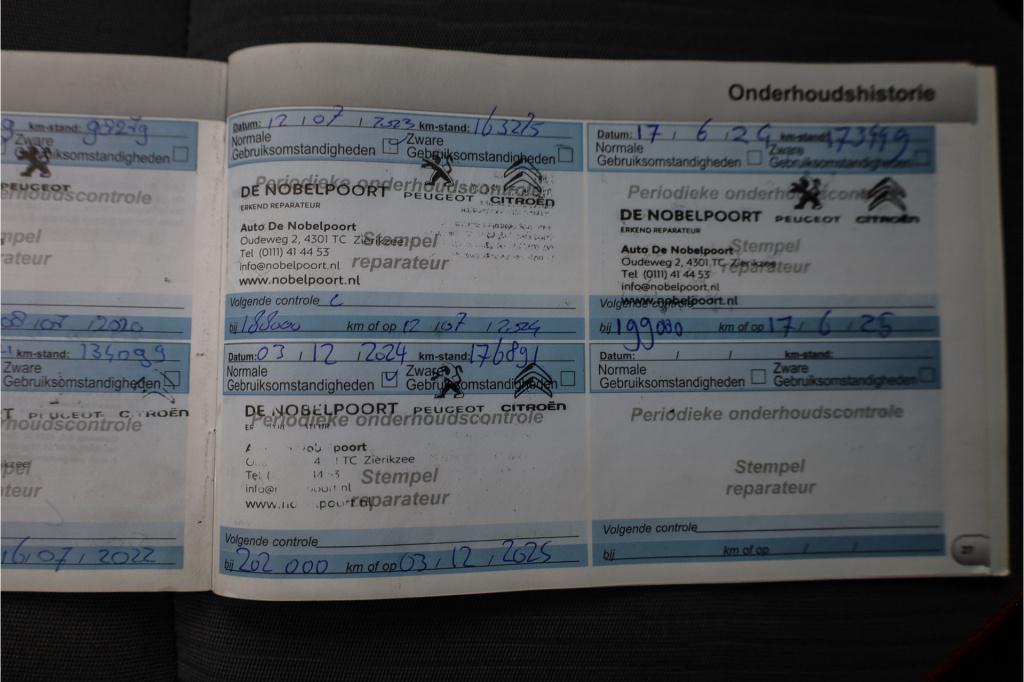 Onderhoudshistorie
km-stand: 98279
Zware
Gebruiksomstandigheden
PEUGEOT
08 / 07 / 2020
km-stand: 134099
Zware
Gebruiksomstandigheden
PEUGEOT CITROËN
16 / 07 / 2022
Datum: 12 / 07 / 2023 km-stand: 163275
Normale Zware
Gebruiksomstandigheden Gebruiksomstandigheden
Periodieke onderhoudscontrole
DE NOBELPOORT PEUGEOT CITROËN
ERKEND REPARATEUR
Auto De Nobelpoort
Oudeweg 2, 4301 TC Zierikzee
Stempel
Tel (0111) 41 44 53
info@nobelpoort.nl
reparateur
www.nobelpoort.nl
Volgende controle
bij 188000 km of op 12 / 07 / 2024
Datum: 17 / 6 / 24 km-stand: 173999
Normale Zware
Gebruiksomstandigheden Gebruiksomstandigheden
Periodieke onderhoudscontrole
DE NOBELPOORT PEUGEOT CITROËN
ERKEND REPARATEUR
Auto De Nobelpoort
Stempel
Oudeweg 2, 4301 TC Zierikzee
Tel (0111) 41 44 53
reparateur
info@nobelpoort.nl
www.nobelpoort.nl
Volgende controle
bij 199000 km of op 17 / 6 / 25
Datum: 03 / 12 / 2024 km-stand: 176891
Normale Zware
Gebruiksomstandigheden Gebruiksomstandigheden
DE NOBELPOORT PEUGEOT CITROËN
Periodieke onderhoudscontrole
TC Zierikzee
Stempel
reparateur
Volgende controle
bij 202 000 km of op 03 / 12 / 2025
Datum: / / km-stand:
Normale Zware
Gebruiksomstandigheden Gebruiksomstandigheden
Periodieke onderhoudscontrole
Stempel
reparateur
Volgende controle
bij km of op / /
27